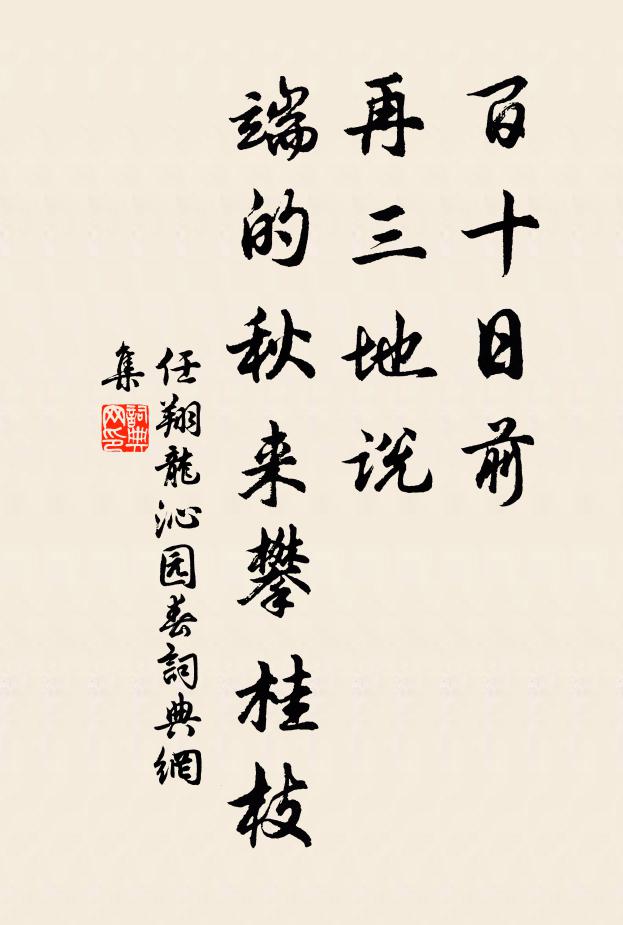 百十日前
再三地说
端的秋来攀桂枝
任翔龍沁园春詞典網
集
詞典网印